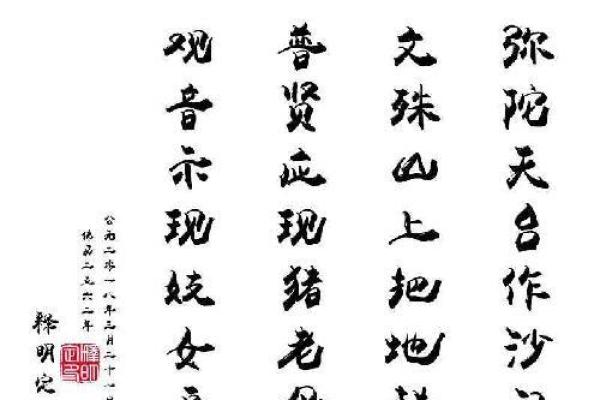 弥陀天台作沙
文殊山上把地
普贤应现猪老
观音示现妓女
公元二零一八年三月二十
佛历二五六二年
释明定